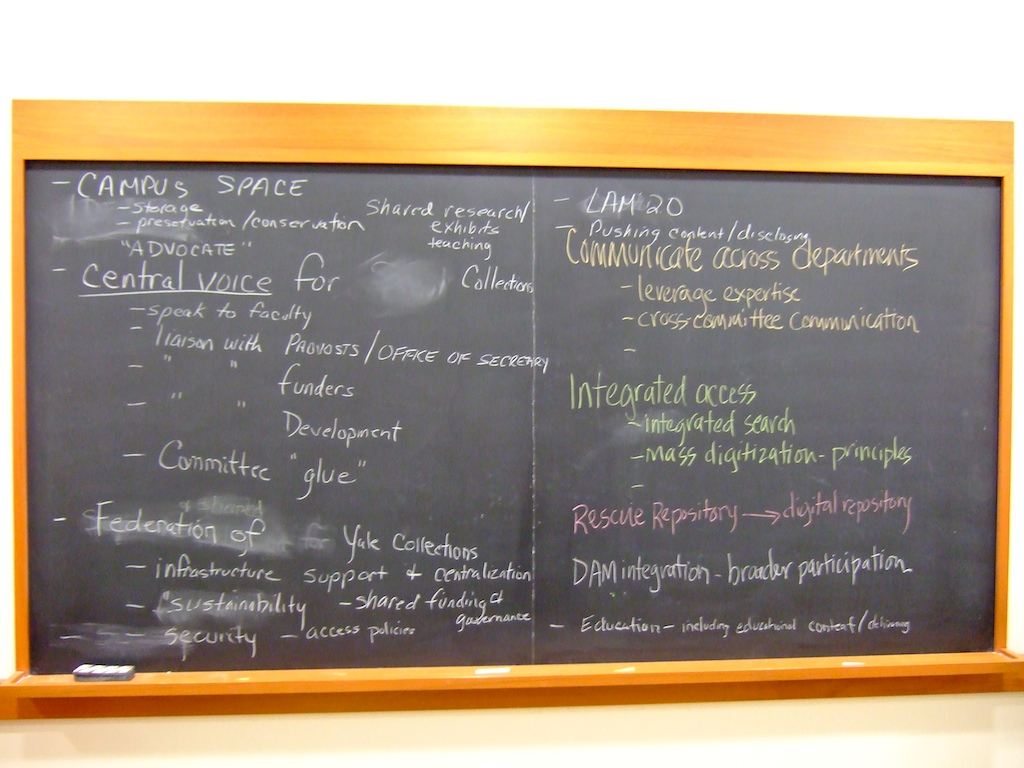 - CAMPUS SPACE
- storage
- preservation/conservation
Shared research/
exhibits
teaching
"ADVOCATE"
- Central voice for Collections
- speak to faculty
- liaison with PROVOSTS/OFFICE OF SECRETARY
- " " funders
- " " Development
- Committee "glue"
& shared
- Federation of for Yale Collections
- infrastructure support & centralization
- "sustainability - shared funding &
governance
- security - access policies
- LAM 2.0
- Pushing content/disclosing
Communicate across departments
- leverage expertise
- cross-committee communication
-
Integrated access
- integrated search
- mass digitization - principles
-
Rescue Repository → digital repository
DAM integration - broader participation
- Education - including educational content/